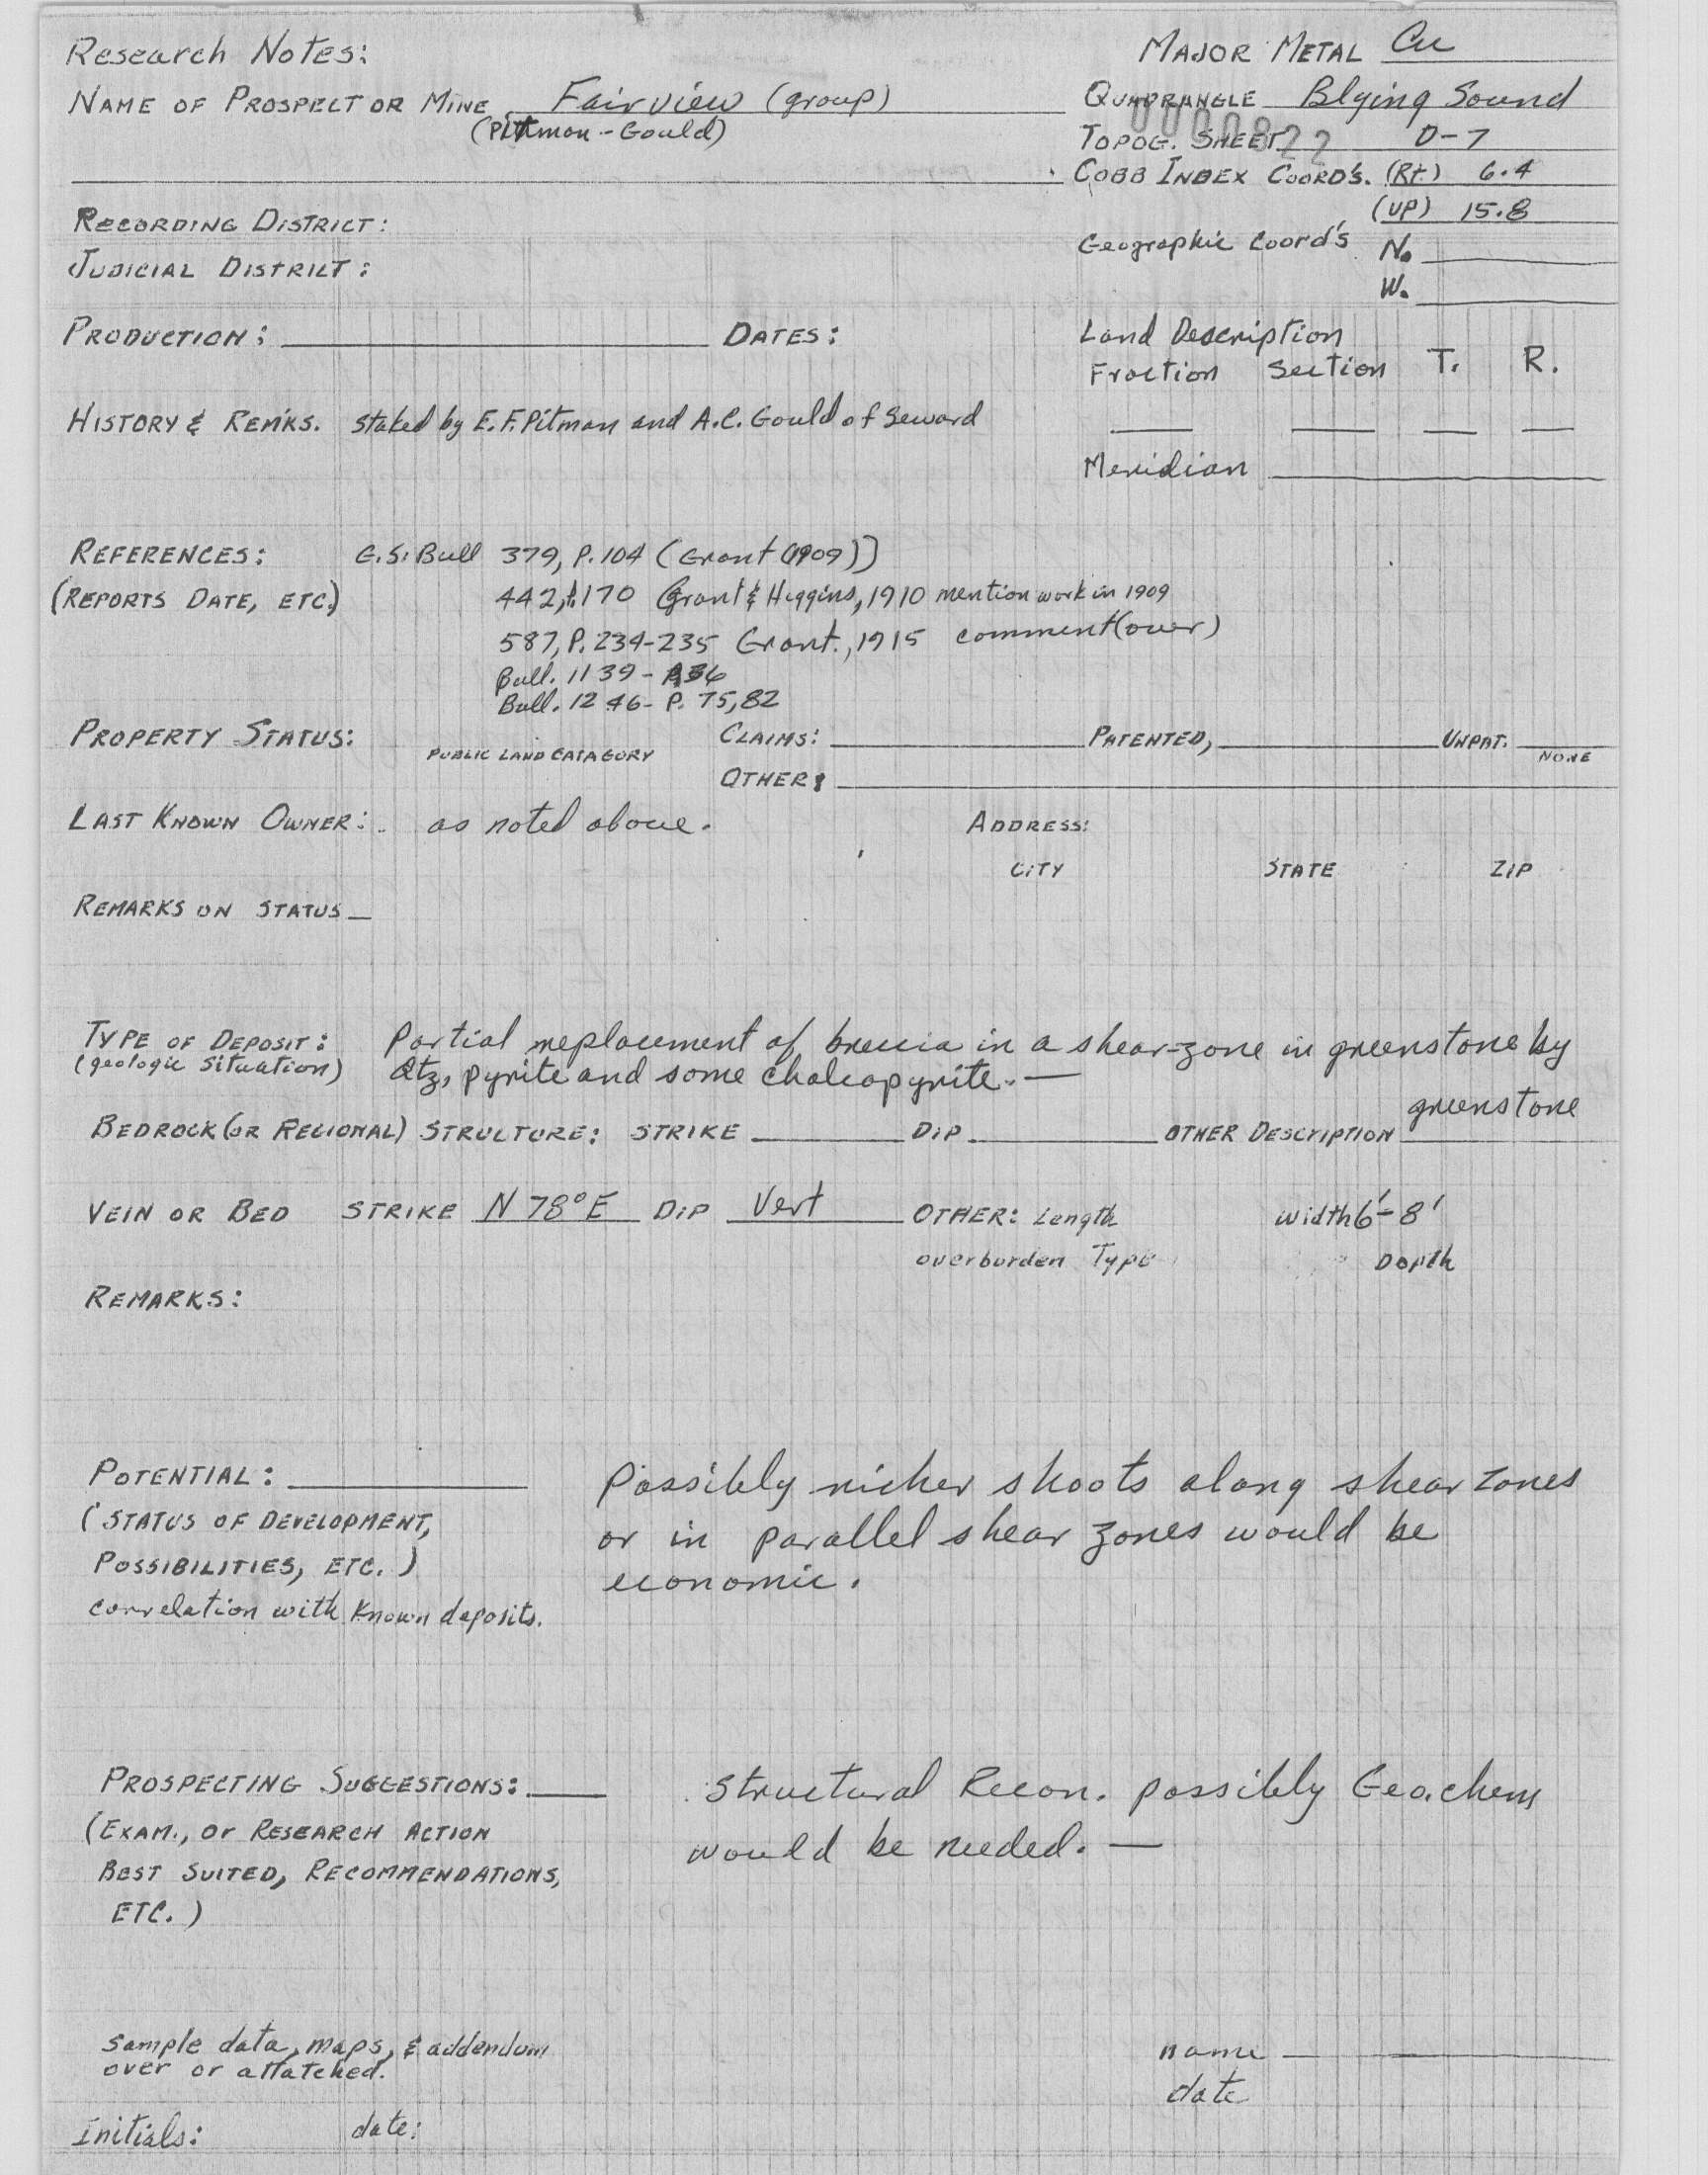 Research Notes:
MAJOR METAL Cu
NAME OF PROSPECT OR MINE Fairview (group)
(Pitman - Gould)
QUADRANGLE Blying Sound
0000822
TOPOG. SHEET D-7
COBB INDEX COORD'S. (Rt.) 6.4
(UP) 15.8
RECORDING DISTRICT:
JUDICIAL DISTRICT:
Geographic Coord's N.
W.
PRODUCTION: DATES:
Land Description
Fraction Section T. R.
HISTORY & REMKS. staked by E.F. Pitman and A.C. Gould of Seward
Meridian
REFERENCES: G.S. Bull 379, P. 104 (Grant (1909))
(REPORTS DATE, ETC.) 442, P. 170 Grant & Higgins, 1910 mention work in 1909
587, P. 234-235 Grant., 1915 comment (over)
Bull. 1139 -
Bull. 1246 - P. 75, 82
PROPERTY STATUS: PUBLIC LAND CATAGORY CLAIMS: PATENTED, UNPAT. NONE
OTHER:
LAST KNOWN OWNER: as noted above. ADDRESS:
CITY STATE ZIP
REMARKS ON STATUS
TYPE OF DEPOSIT: Partial replacement of breccia in a shear-zone in greenstone by
(geologic situation) Qtz, pyrite and some chalcopyrite. —
BEDROCK (OR REGIONAL) STRUCTURE: STRIKE DIP OTHER DESCRIPTION greenstone
VEIN OR BED STRIKE N 78° E DIP Vert OTHER: Length width 6'- 8'
overburden Type Depth
REMARKS:
POTENTIAL: Possibly richer shoots along shear zones
(STATUS OF DEVELOPMENT, or in parallel shear zones would be
POSSIBILITIES, ETC.) economic.
correlation with known deposits.
PROSPECTING SUGGESTIONS: Structural Recon. possibly Geo.chem
(EXAM., or RESEARCH ACTION would be needed. —
BEST SUITED, RECOMMENDATIONS,
ETC.)
sample data, maps, & addendum
over or attatched.
name
date
Initials: date: